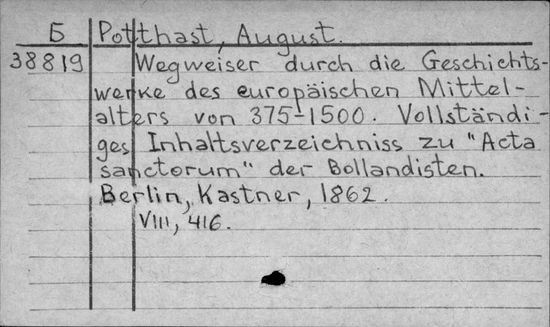 Б Potthast, August.
38819 Wegweiser durch die Geschichts-
werke des europäischen Mittel-
alters von 375-1500. Vollständi-
ges Inhaltsverzeichniss zu "Acta
sanctorum" der Bollandisten.
Berlin, Kastner, 1862.
VIII, 416.